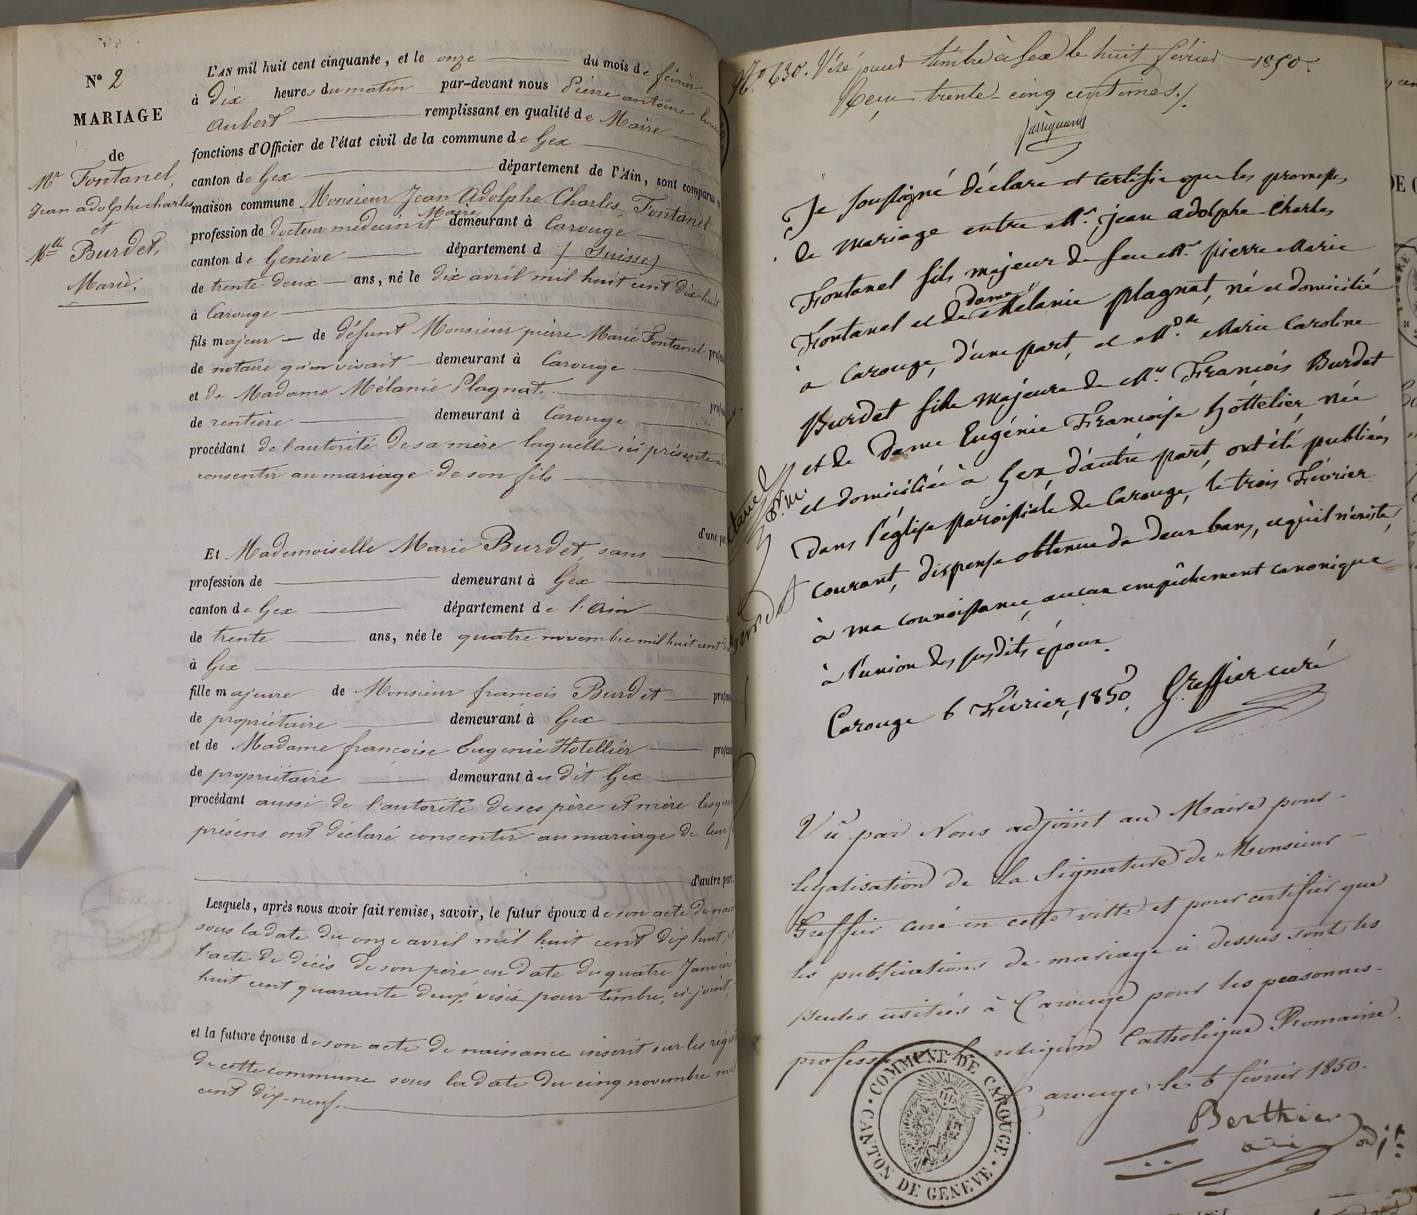 N° 2
MARIAGE
de
Mr Fontanel,
Jean adolphe charles
et
Mlle Burdet,
Marie.
L'AN mil huit cent cinquante, et le onze du mois de février
à dix heures du matin par-devant nous Pierre antoine
Aubert remplissant en qualité de Maire
fonctions d'Officier de l'état civil de la commune de Gex
canton de Gex département de l'Ain, sont comparus
maison commune Monsieur Jean Adolphe Charles, Fontanel
profession de docteur médecin et Maire demeurant à Carouge
canton de Genève département d (Suisse)
de trente deux ans, né le dix avril mil huit cent dix huit
à Carouge
fils majeur de défunt Monsieur pierre Marie Fontanel
de notaire qu'on vivait demeurant à Carouge
et de Madame Mélanie Plagnat.
de rentière demeurant à Carouge
procédant de l'autorité de sa mère laquelle ici présente
consentir au mariage de son fils
d'une par
Et Mademoiselle Marie Burdet, sans
profession de demeurant à Gex
canton de Gex département de l'Ain
de trente ans, née le quatre novembre mil huit cent
à Gex
fille majeure de Monsieur françois Burdet
de propriétaire demeurant à Gex
et de Madame françoise Eugenie Hotellier
de propriétaire demeurant àudit Gex
procédant aussi de l'autorité de ses père et mère
présens ont déclaré consentir au mariage de leur
d'autre par
Lesquels, après nous avoir fait remise, savoir, le futur époux de son acte de
sous la date du onze avril mil huit cent dix huit,
l'acte de décès de son père en date du quatre Janvier
huit cent quarante deux visés pour timbre, ci joint,
et la future épouse de son acte de naissance inscrit sur les
de cette commune sous la date du cinq novembre
cent dix-neuf.
N° 630. Visé pour timbre à Gex le huit février 1850.
Reçu trente-cinq centimes.
Je soussigné déclare et certifie que les promesses
de mariage entre Mr. jean adolphe-charles
Fontanel fils majeur de feu Mr pierre Marie
Fontanel et de dame Mélanie plagnat, né et domicilié
à Carouge, d'une part, et Mdlle Marie Caroline
Burdet fille majeure de Mr. François Burdet
et de Dame Eugénie Françoise hottelier, née
et domiciliée à Gex, d'autre part, ont été publiées
dans l'église paroissiale de Carouge, le trois Février
courant, dispense obtenue de deux bans, et qu'il n'existe,
à ma connoissance, aucun empêchement canonique
à l'union des susdits époux.
Carouge 6 Février, 1850. Greffier curé
Vu par Nous adjoint au Maire pour
legalisation de la Signature de Monsieur
Greffier curé en cette ville et pour certifier que
les publications de mariage ci dessus sont les
seules usitées à Carouge pour les personnes
la religion Catholique Romaine.
Carouge le 6 février 1850.
Berthier
adjt
COMMUNE DE CAROUGE
CANTON DE GENEVE